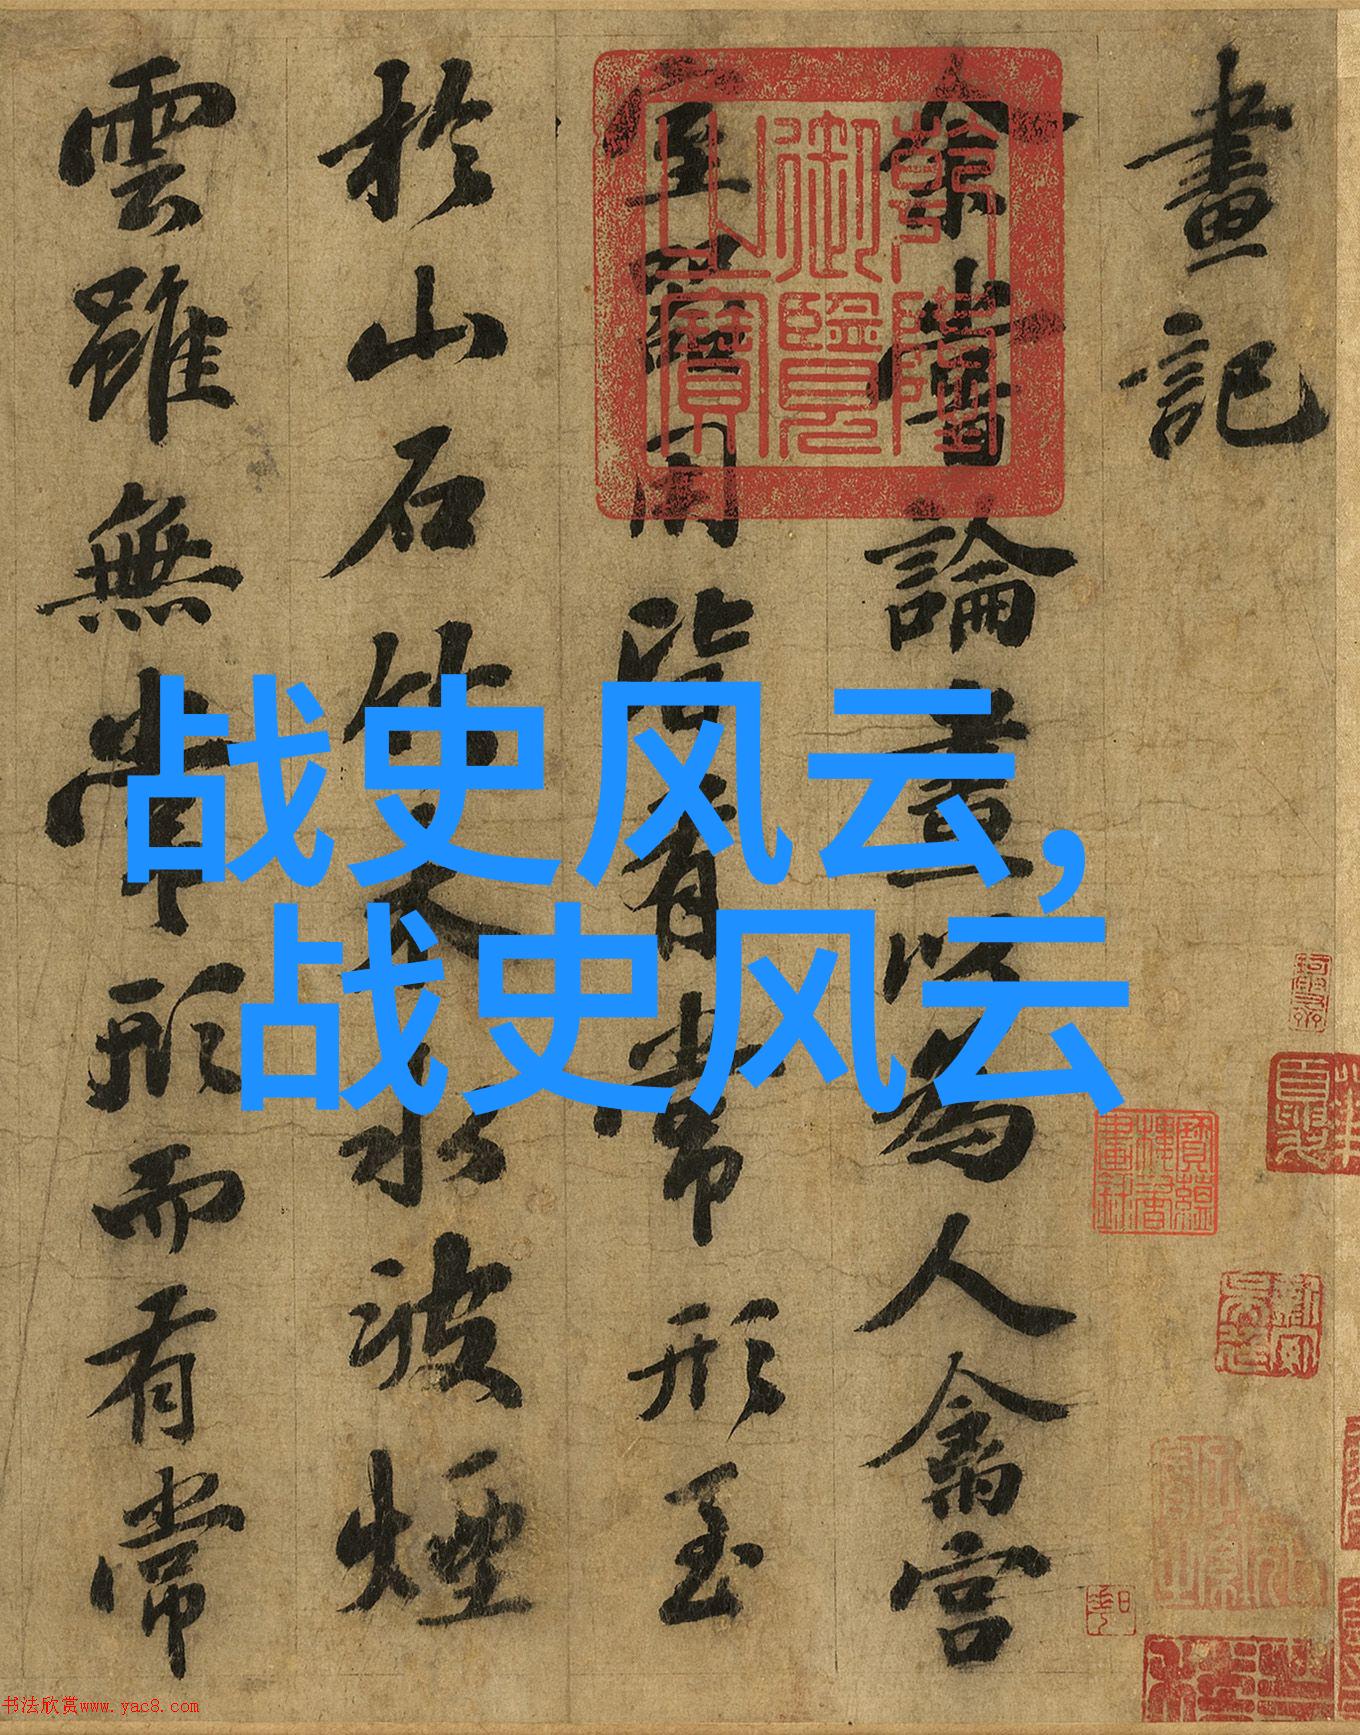 畫記
余嘗論畫以為人禽宮
室器用皆有常形至
於山石竹木水波煙
雲雖無常形而有常
乾隆御覽之寶
战史风云,
战史风云
书法欣赏www.yac8.com